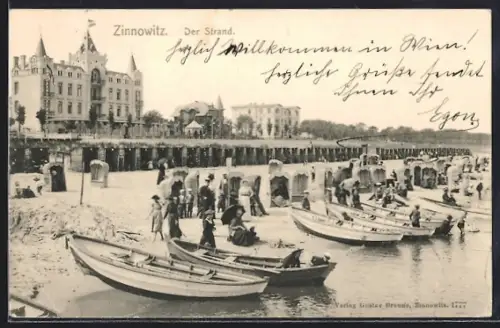 Zinnowitz. Der Strand.
herzlich Willkommen in Wien!
herzliche Grüße sendet
Ihnen Ihr
Egon
Verlag Gustav Brandt, Zinnowitz. 1777